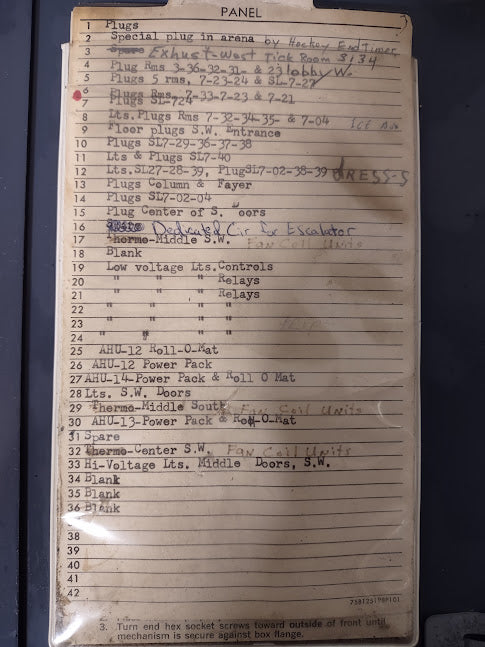 PANEL
1 Plugs
2 Special plug in arena by Hockey End Timer
3 Spare Exhust-West Tick Room S134
4 Plug Rms 3-36-32-31- & 23 lobby W.
5 Plugs 5 rms, 7-23-24 & SL-7-27
6 Plugs Rms, 7-33-7-23 & 7-21
7 Plugs SL-724
8 Lts. Plugs Rms 7-32-34-35- & 7-04
9 Floor plugs S.W. Entrance
10 Plugs SL7-29-36-37-38
11 Lts & Plugs SL7-40
12 Lts. SL27-28-39, Plug SL7-02-38-39 DRESS-S
13 Plugs Column & Fayer
14 Plugs SL7-02-04
15 Plug Center of S. Doors
16 Spare Dedicated Cir for Escalator
17 Thermo-Middle S.W. Fan Coil Units
18 Blank
19 Low voltage Lts. Controls
20 " " " Relays
21 " " " Relays
22 " " " "
23 " " " "
24 " " " "
25 AHU-12 Roll-O-Mat
26 AHU-12 Power Pack
27 AHU-14-Power Pack & Roll O Mat
28 Lts. S.W. Doors
29 Thermo-Middle South Fan Coil Units
30 AHU-13-Power Pack & Roll-O-Mat
31 Spare
32 Thermo-Center S.W. Fan Coil Units
33 Hi-Voltage Lts. Middle Doors, S.W.
34 Blank
35 Blank
36 Blank
38
39
40
41
42
3. Turn end hex socket screws toward outside of front until
mechanism is secure against box flange.